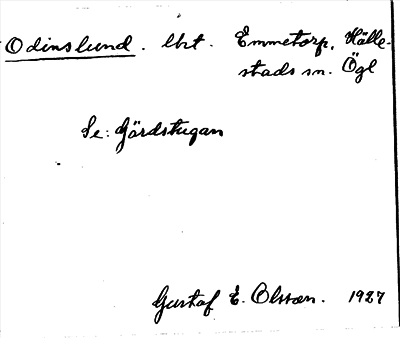 Odinslund. lht. Emmetorp, Hälle-
stads sn. Ögl
Se: Gärdstugan
Gustaf E. Olsson. 1927